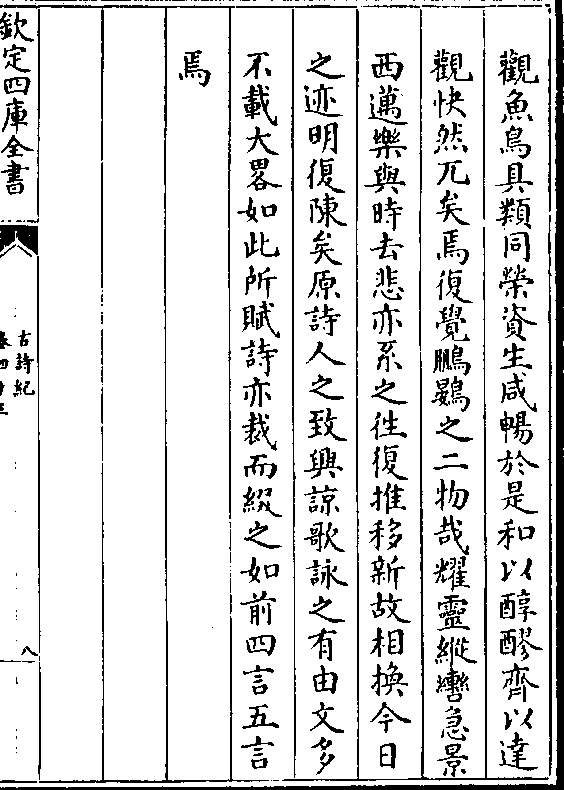 觀魚鳥具類同榮資生咸暢於是和以醇醪齊以達
觀快然兀矣焉復覺鵬鷃之二物哉耀靈縱轡急景
西邁樂與時去悲亦系之徃復推移新故相換今日
之迹明復陳矣原詩人之致興諒歌詠之有由文多
不載大畧如此所賦詩亦裁而綴之如前四言五言
焉
欽定四庫全書
古詩紀
卷四十三
八